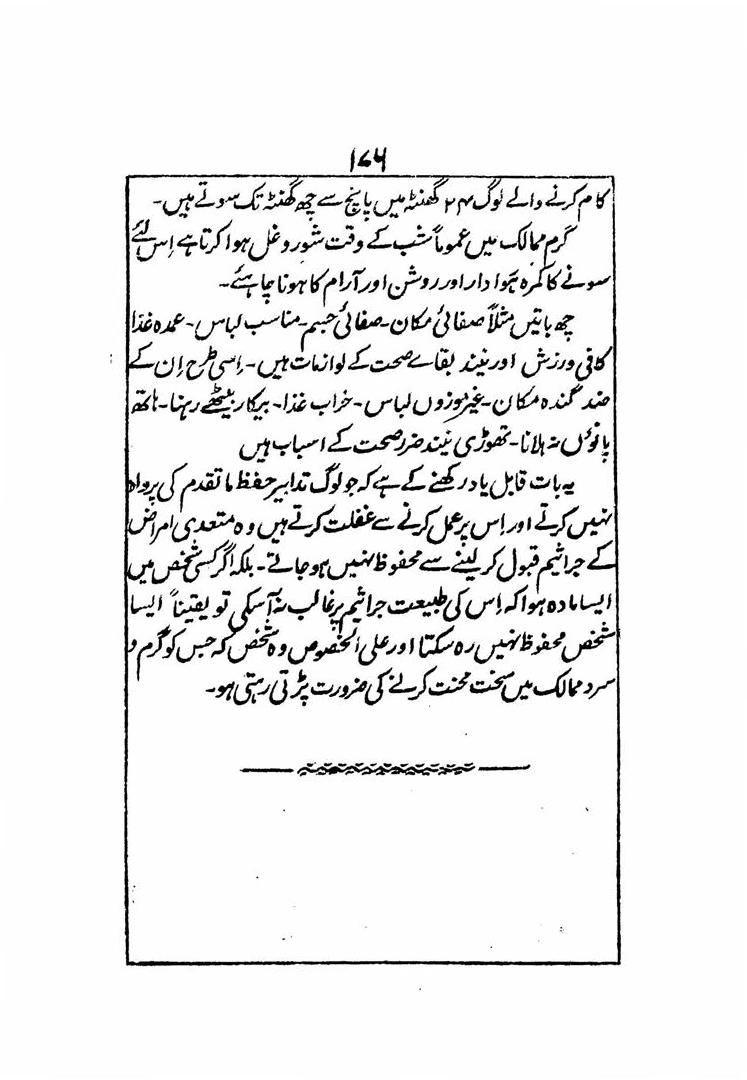 ۱۷۶
کام کرنے والے لوگ ۲۴ گھنٹہ میں پانچ سے چھ گھنٹہ تک سوتے ہیں۔
گرم ممالک میں عموماً شب کے وقت شور و غل ہوا کرتا ہے اِس لئے
سونے کا کمرہ ہوا دار اور روشن اور آرام کا ہونا چاہئے۔
چھ باتیں مثلاً صفائی مکان۔ صفائی جسم۔ مناسب لباس۔ عمدہ غذا
کافی ورزش اور نیند بقاے صحت کے لوازمات ہیں۔ اِسی طرح اِن کے
ضد گندہ مکان۔ غیر موزوں لباس۔ خراب غذا۔ بیکار بیٹھے رہنا۔ ہاتھ
پانوں نہ ہلانا۔ تھوڑی نیند ضرر صحت کے اسباب ہیں
یہ بات قابل یاد رکھنے کے ہے کہ جو لوگ تدابیر حفظ ما تقدم کی پرواہ
نہیں کرتے اور اِس پر عمل کرنے سے غفلت کرتے ہیں وہ متعدی امراض
کے جراثیم قبول کر لینے سے محفوظ نہیں ہو جاتے۔ بلکہ اگر کسی شخص میں
ایسا مادہ ہوا کہ اِس کی طبیعت جراثیم پر غالب نہ آسکی تو یقیناً ایسا
شخص محفوظ نہیں رہ سکتا اور علی الخصوص وہ شخص کہ جس کو گرم و
سرد ممالک میں سخت محنت کرنے کی ضرورت پڑتی رہتی ہو۔